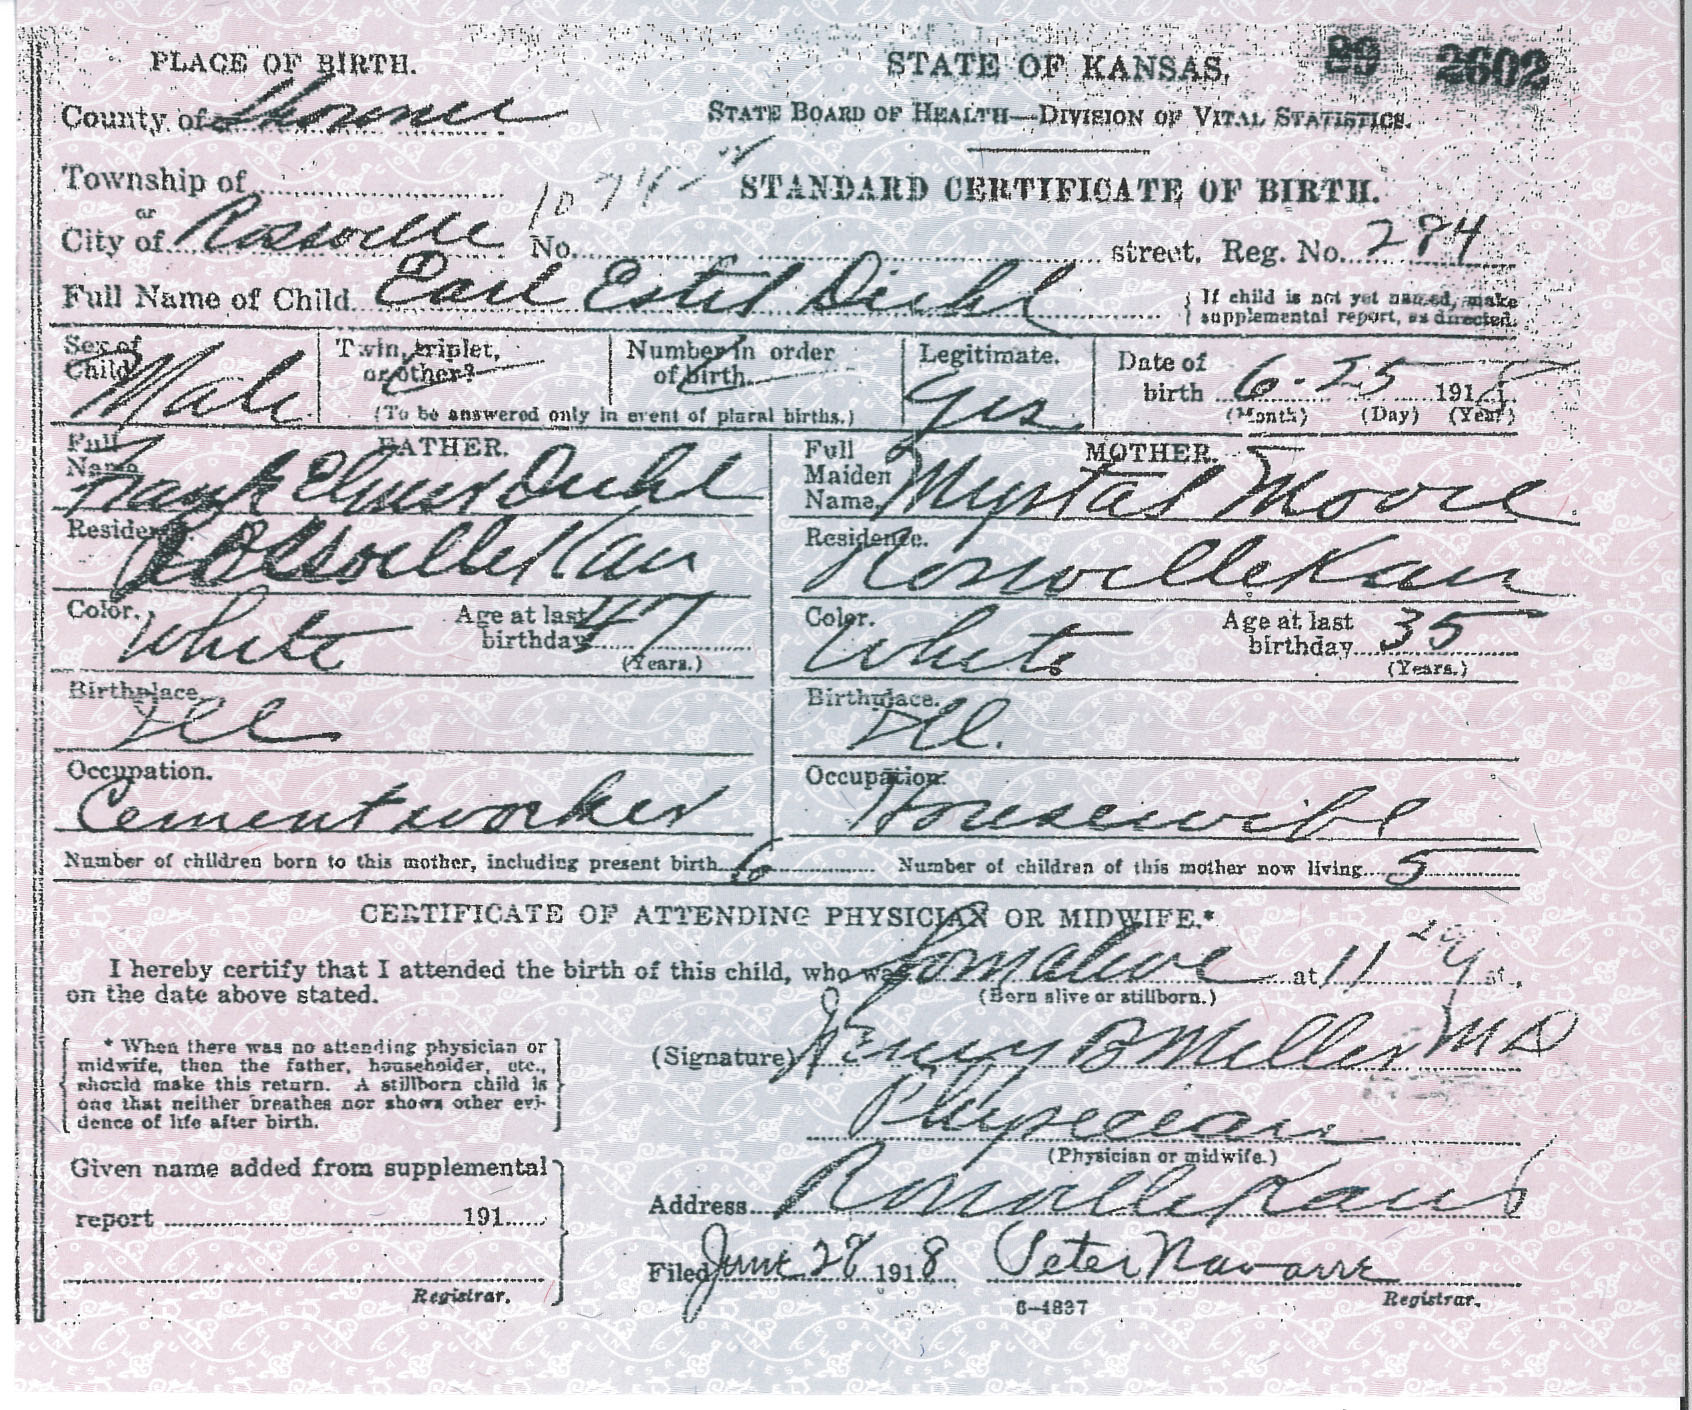 PLACE OF BIRTH.
STATE OF KANSAS,
89 2602
County of Shawnee
STATE BOARD OF HEALTH—DIVISION OF VITAL STATISTICS.
Township of
STANDARD CERTIFICATE OF BIRTH.
or
City of Rossville No. street. Reg. No. 284
Full Name of Child Earl Estel Diehl
If child is not yet named, make
supplemental report, as directed.
Sex of Child Male
Twin, triplet, or other?
Number in order of birth.
(To be answered only in event of plural births.)
Legitimate. Yes
Date of birth 6-25 1918
(Month) (Day) (Year)
FATHER.
Full Name Frank Elmer Diehl
MOTHER.
Full Maiden Name Myrtal Moore
Residence. Rossville Kan
Residence. Rossville Kan
Color. White Age at last birthday 47 (Years.)
Color. White Age at last birthday 35 (Years.)
Birthplace. Ill
Birthplace. Ill.
Occupation. Cement worker
Occupation. Housewife
Number of children born to this mother, including present birth 6 Number of children of this mother now living 5
CERTIFICATE OF ATTENDING PHYSICIAN OR MIDWIFE.*
I hereby certify that I attended the birth of this child, who was born alive at 11
(Born alive or stillborn.)
on the date above stated.
* When there was no attending physician or
midwife, then the father, householder, etc.,
should make this return. A stillborn child is
one that neither breathes nor shows other evi-
dence of life after birth.
(Signature) Henry B Miller MD
Physician
(Physician or midwife.)
Given name added from supplemental
report 191
Registrar.
Address Rossville Kans
Filed June 28 1918 Peter Navarre
6-4837
Registrar.